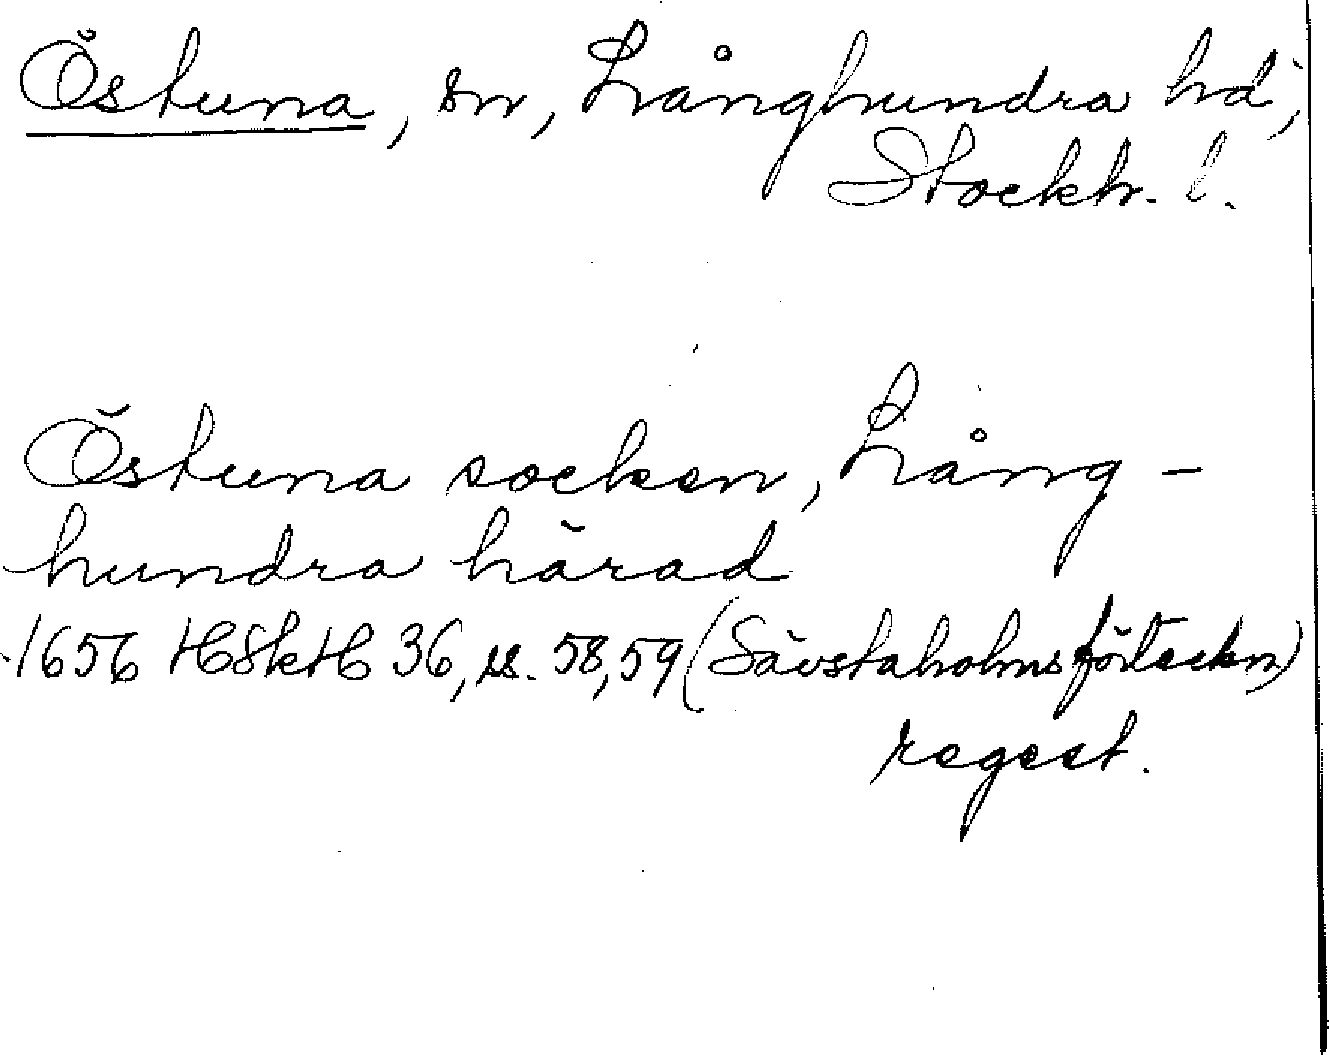 Östuna, sn, Långhundra hd,
Stockh. l.
Östuna socken, Lång-
hundra härad
1656 HSkH 36, ss. 58, 59 (Sävstaholmsförteckn)
regest.